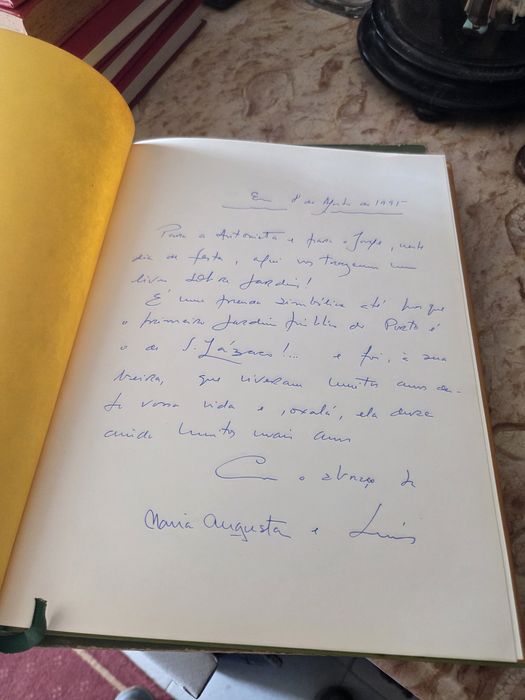 Em 8 de Agosto de 1995
Para a Antonieta e para o Jorge, neste
dia de festa, aqui vos trazemos um
livro sobre Jardins!
É uma prenda simbólica até porque
o primeiro Jardim público do Porto é
o de S. Lázaro!... e foi, à sua
beira, que viveram muitos anos des-
ta vossa vida e, oxalá, ela dure
ainda muitos mais anos
Com o abraço de
Maria Augusta e Luís